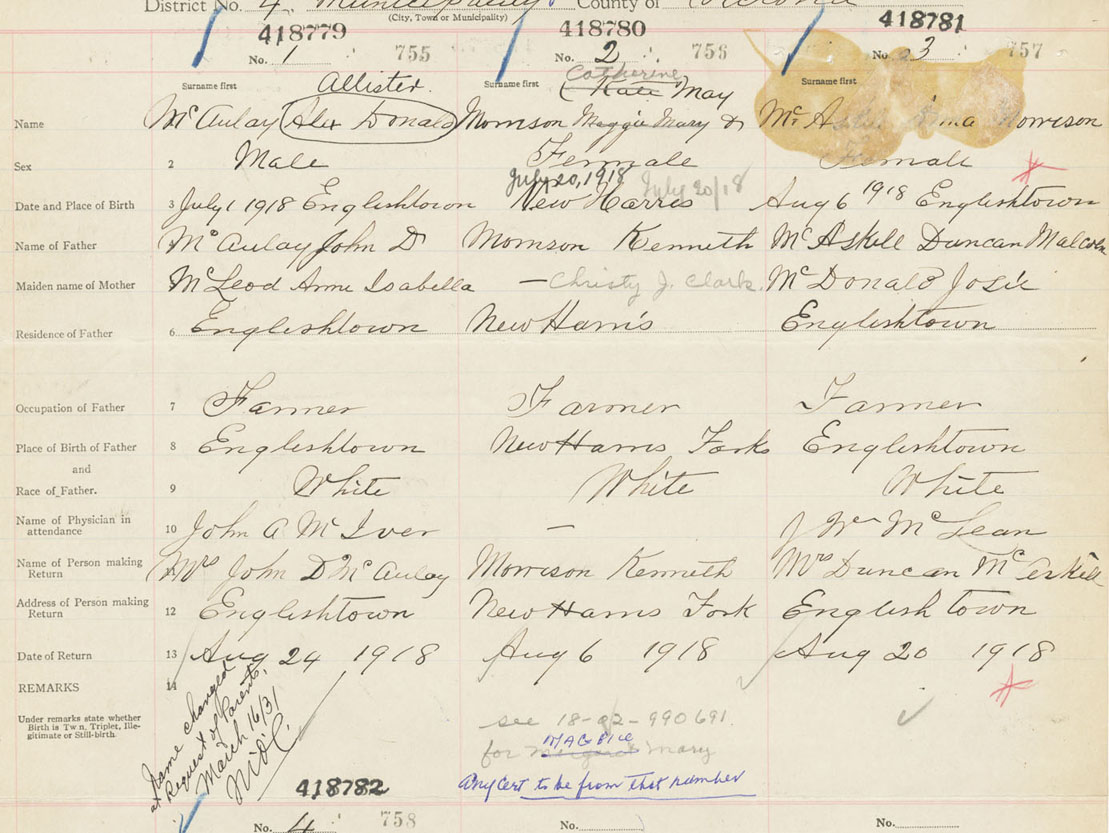 District No. 4 Municipality County of Victoria
(City, Town or Municipality)
418779 418780 418781
No. 1 755 No. 2 756 No. 3 757
Surname first Allister Surname first Catherine Surname first
(Kate May
Name McAulay (Alex Donald) Morrison Maggie Mary & Mc A Morrison
Sex 2 Male Female Female
July 20, 1918 July 20/18
Date and Place of Birth 3 July 1 1918 Englishtown New Harris Aug 6 1918 Englishtown
Name of Father McAulay John D Morrison Kenneth McAskill Duncan Malcolm
Maiden name of Mother McLeod Anne Isabella — Christy J. Clark. McDonald Josie
Residence of Father 6 Englishtown New Harris Englishtown
Occupation of Father 7 Farmer Farmer Farmer
Place of Birth of Father 8 Englishtown New Harris Forks Englishtown
and
Race of Father. 9 White White White
Name of Physician in
attendance 10 John A McIver — J Wm McLean
Name of Person making
Return 11 Mrs John D McAulay Morrison Kenneth Mrs Duncan McAskill
Address of Person making
Return 12 Englishtown New Harris Fork English town
Date of Return 13 Aug 24 1918 Aug 6 1918 Aug 20 1918
REMARKS 14
Under remarks state whether
Birth is Twin, Triplet, Ille-
gitimate or Still-birth.
Name changed
at Request of Parents,
March 16/31
see 18-92-990691.
MAGGIE
for Margaret Mary
Any Cert to be from that number
418782
No. 4 758 No. No.